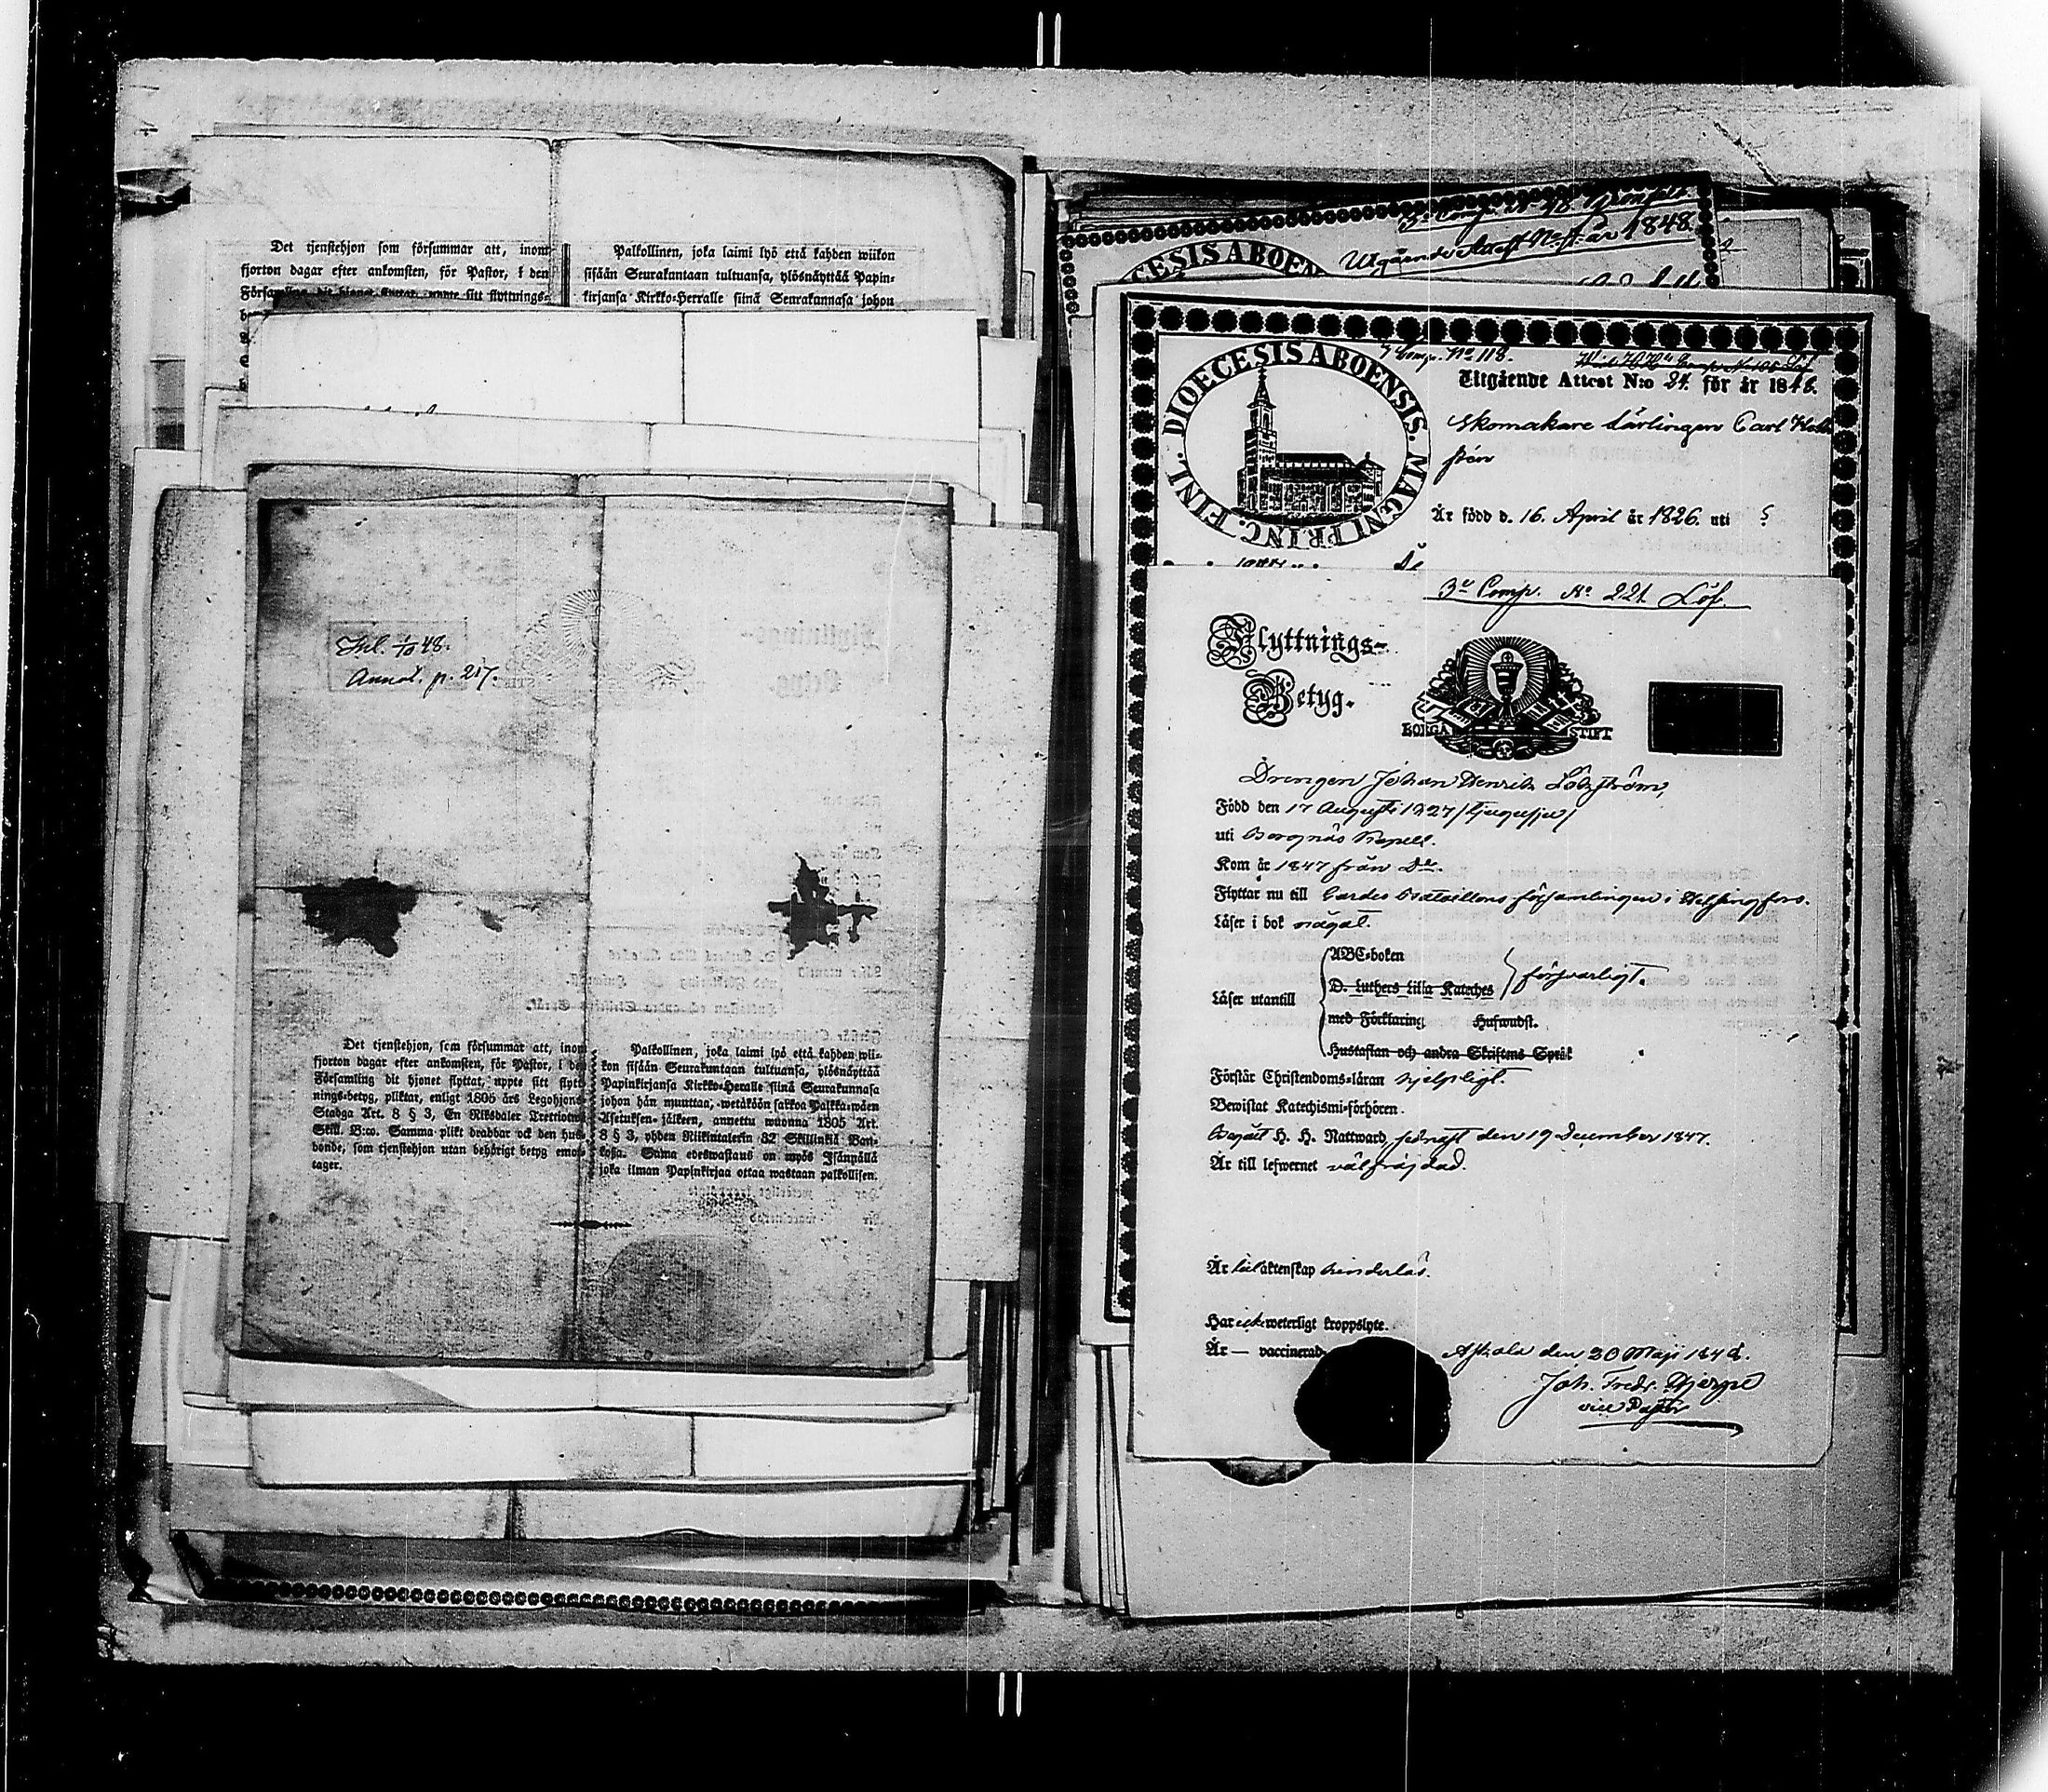 Det tjenstehjon som försummar att, inom
fjorton dagar efter ankomsten, för Pastor, i den
Palkollinen, joka laimi lyö että kahden wiikon
sisään Seurakuntaan tultuansa, ylösnäyttää Papin-
kirjansa Kirkko-Herralle siinä Seurakunnasa johon
Inl. 1/10 48.
Annot. p. 217.
Det tjenstehjon, som försummar att, inom
fjorton dagar efter ankomsten, för Pastor, i den
Församling dit hjonet flyttat, uppte sitt flytt-
nings-betyg, pliktar, enligt 1805 års Legohjons
Stadga Art. 8 § 3, En Riksdaler Trettiotwå
Skill. B:co. Samma plikt drabbar ock den hus-
bonde, som tjenstehjon utan behörigt betyg emot-
tager.
Palkollinen, joka laimi lyö että kahden wii-
kon sisään Seurakuntaan tultuansa, ylösnäyttää
Papinkirjansa Kirkko-Heralle siinä Seurakunnasa
johon hän muuttaa, wetäköön sakkoa Palkka-wäen
Asetuksen jälkeen, annettu wuonna 1805 Art.
8 § 3, yhden Riikintalerin 32 Skillinkiä Ban-
kosa. Sama edeswastaus on myös Isännällä
joka ilman Papinkirjaa ottaa wastaan palkollisen.
Utgående Attest N:o för år 1848.
DIOECESIS ABOENSIS. MAGNI PRINC. FINL.
Comp. No 118.
Utgående Attest N:o 24. för år 1846.
Skomakare lärlingen Carl
Är född d. 16. April år 1826. uti ?
3e Comp. No 221 Löf.
Flyttnings-
Betyg.
BORGÅ STIFT
Drengen Johan Henrik Löfström,
Född den 17 Augusti 1827 /tjugusju/
uti Borgnäs Kapell.
Kom år 1847 från Do.
Flyttar nu till Gardes Bataillons församlingen i Helsingfors.
Läser i bok något.
Läser utantill
ABC-boken
D. Luthers Lilla Kateches
med Förklaring Hufwudst.
Hustaflan och andra Skriftens Språk
försvarligt.
Förstår Christendoms-läran hjelpligt.
Bewistat Katechismi-förhören.
Begått H. H. Nattward, sednast den 19 December 1847.
Är till lefwernet välfräjdad.
Är till äktenskap hinderlös.
Har icke weterligt kroppslyte.
Är — vaccinerad.
Askola den 20 Maji 1848.
Joh. Fredr.
vice Pastor